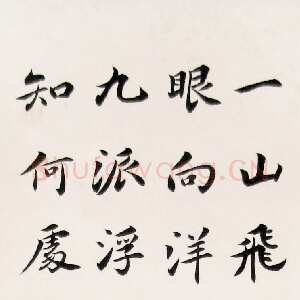 一山飛
眼向洋
九派浮
知何處
Shufawang.CN